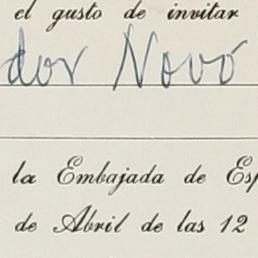 el gusto de invitar
dor Novó
la Embajada de Esp
de Abril de las 12